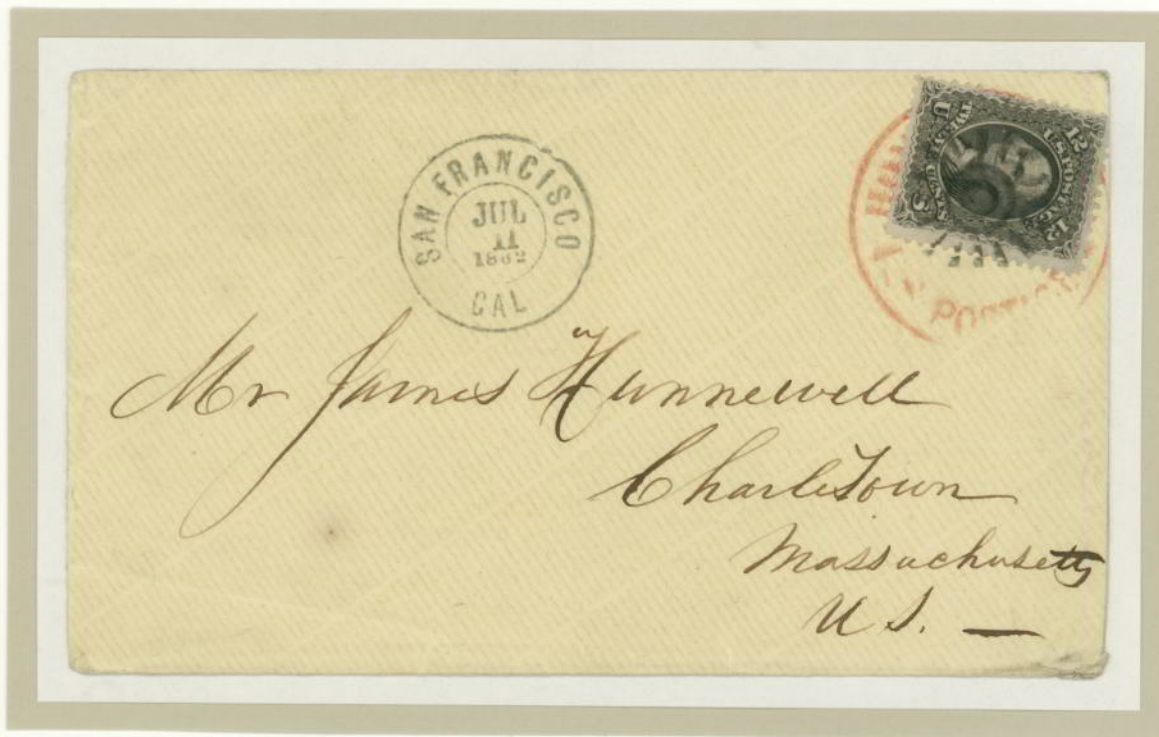 SAN FRANCISCO
JUL
11
1862
CAL
U.S. POSTAGE
12
12
U
S
Mr James Hunnewell
Charlestown
Massachusetts
U S. —